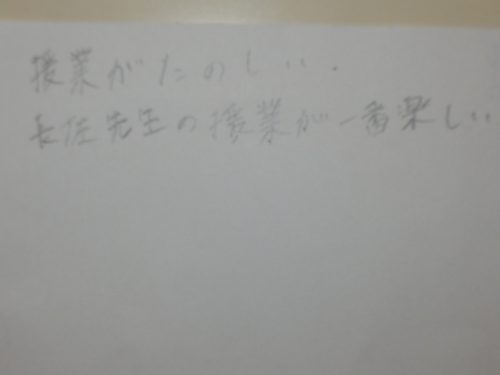 授業がたのしい.
長佐先生の授業が一番楽しい